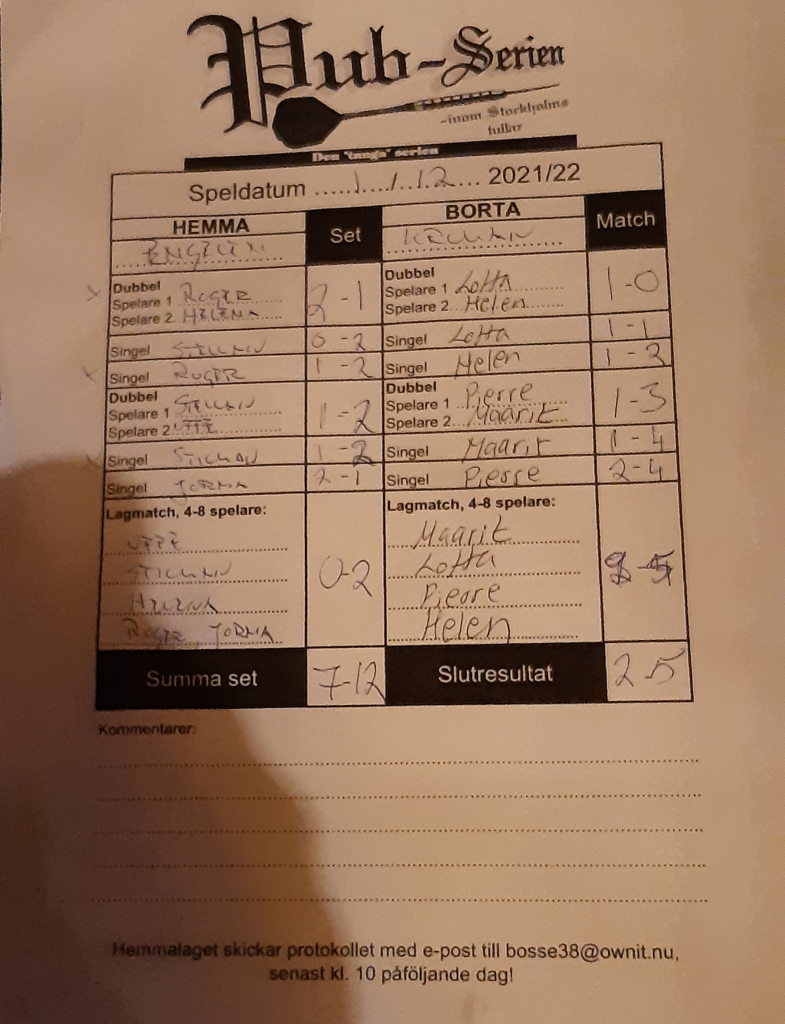 Pub-Serien
-inom Stockholms
tullar
Den "tunga" serien
Speldatum 1/12 2021/22
HEMMA Set BORTA Match
Dubbel Dubbel
Spelare 1 ROGER 2-1 Spelare 1 Lotta 1-0
Spelare 2 HELENA Spelare 2 Helen
Singel 0-2 Singel Lotta 1-1
Singel ROGER 1-2 Singel Helen 1-2
Dubbel Dubbel
Spelare 1 1-2 Spelare 1 Pierre 1-3
Spelare 2 UFFE Spelare 2 Maarit
Singel 1-2 Singel Maarit 1-4
Singel JORMA 2-1 Singel Pierre 2-4
Lagmatch, 4-8 spelare: Lagmatch, 4-8 spelare:
UFFE Maarit
Lotta
HELENA 0-2 Pierre
ROGER JORMA Helen
Summa set 7-12 Slutresultat 2-5
Kommentarer:
Hemmalaget skickar protokollet med e-post till bosse38@ownit.nu,
senast kl. 10 påföljande dag!